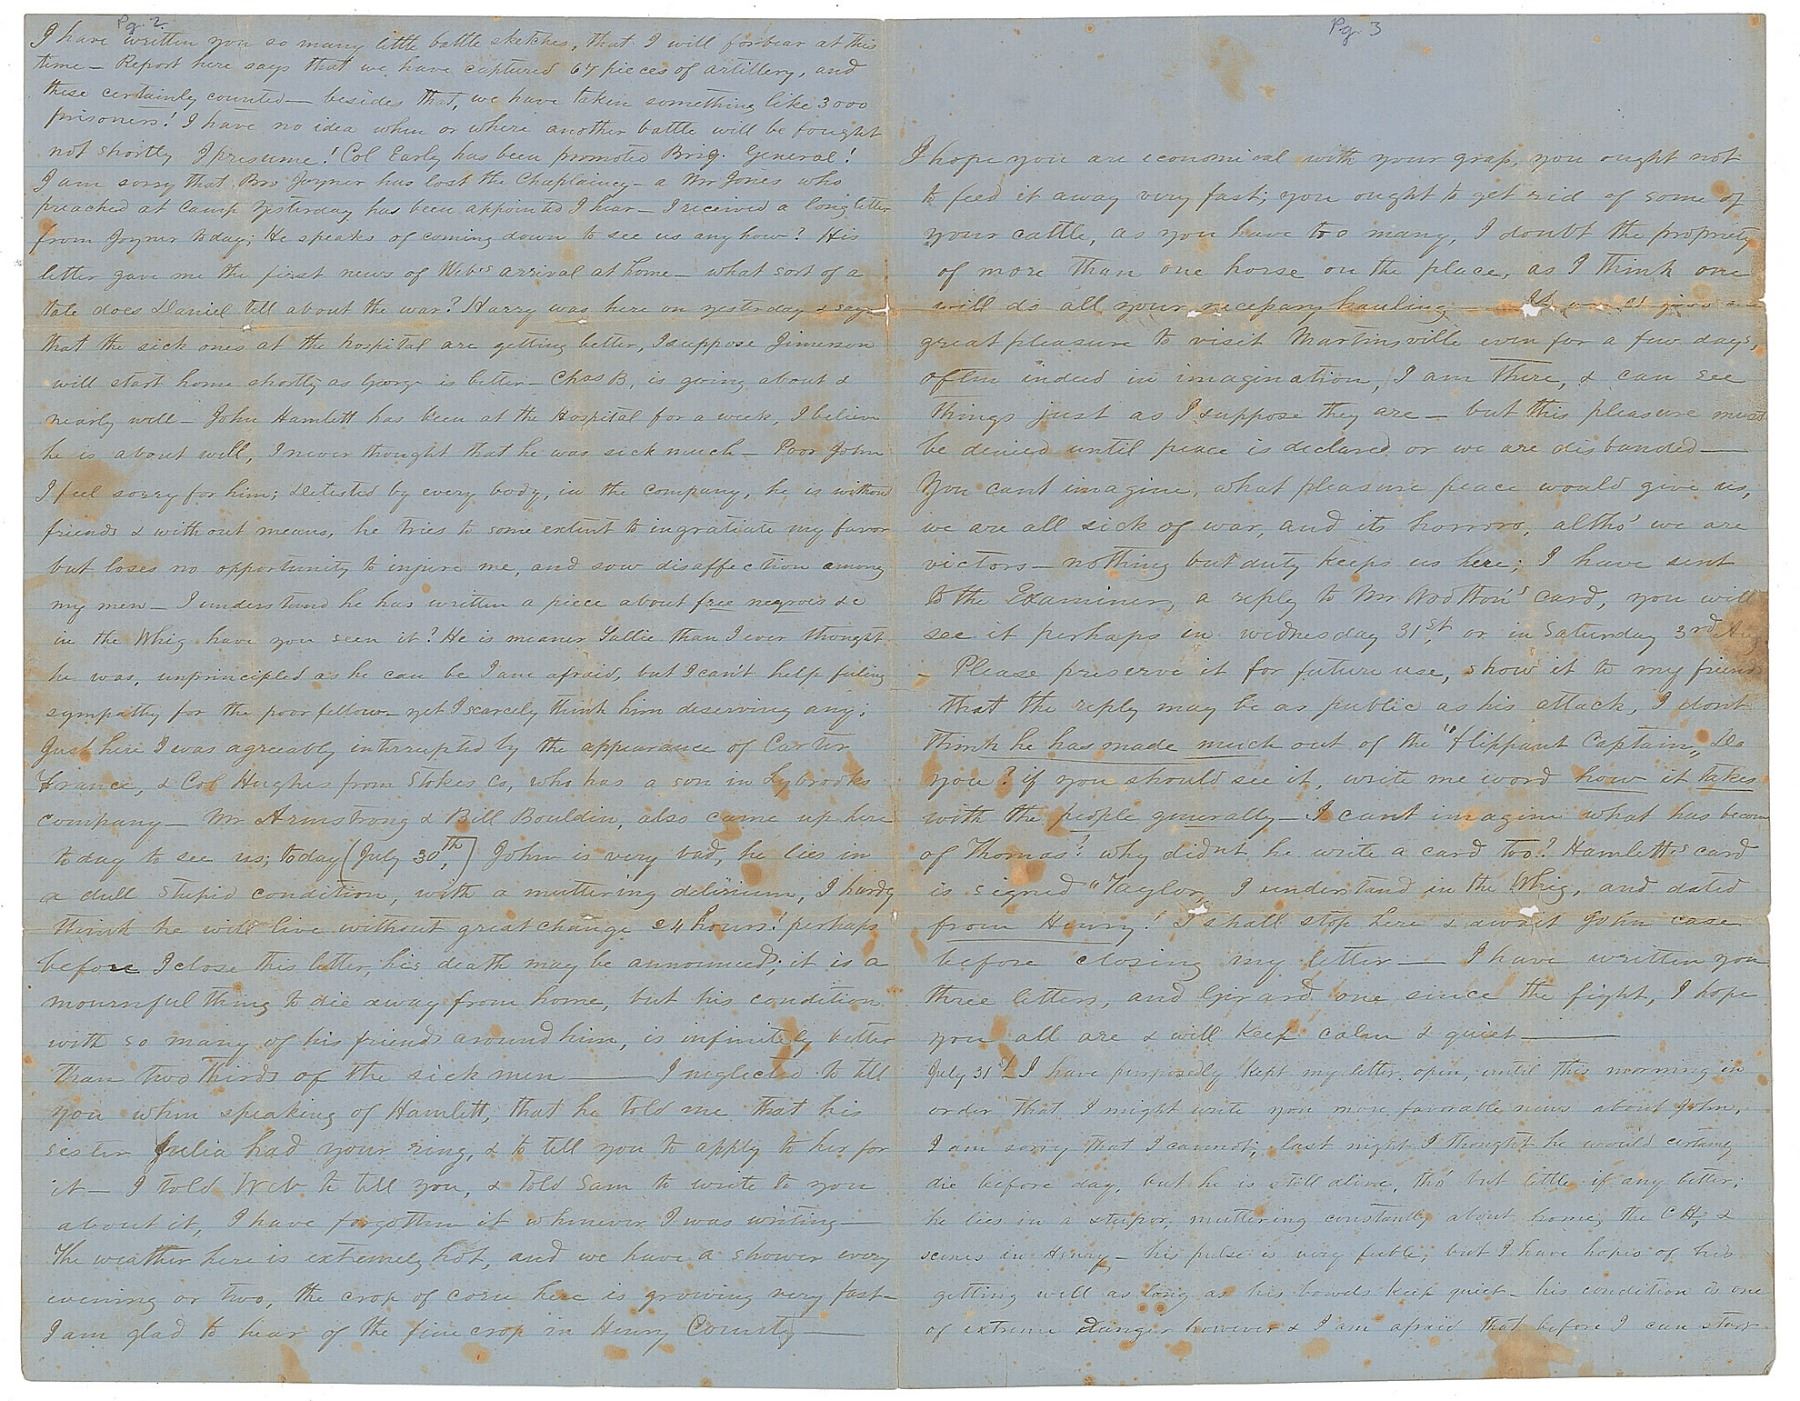 Pg. 2
I have written you so many little battle sketches, that I will forbear at this
time — Report here says that we have captured 67 pieces of artillery, and
these certainly counted — besides that, we have taken something like 3000
prisoners! I have no idea when or where another battle will be fought
not shortly I presume! Col Early has been promoted Brig. General!
I am sorry that Bro Joyner has lost the Chaplaincy — a Mr Jones who
preached at Camp yesterday has been appointed I hear — I received a long letter
from Joyner today; He speaks of coming down to see us any how? His
letter gave me the first news of Web's arrival at home — what sort of a
tale does Daniel tell about the war? Harry was here on yesterday & says
that the sick ones at the hospital are getting better, I suppose Jimerson
will start home shortly as George is better — Chas B, is going about &
nearly well — John Hamlett has been at the Hospital for a week, I believe
he is about well, I never thought that he was sick much — Poor John
I feel sorry for him; detested by every body, in the company, he is without
friends & without means, he tries to some extent to ingratiate my favor
but loses no opportunity to injure me, and sow disaffection among
my men — I understand he has written a piece about free negroes &c
in the Whig have you seen it? He is meaner Sallie than I ever thought
he was, unprincipled as he can be I am afraid, but I can't help feeling
sympathy for the poor fellow — yet I scarcely think him deserving any;
Just here I was agreeably interrupted by the appearance of Carter
France, & Col Hughes from Stokes Co, who has a son in Lybrooks
company — Mr Armstrong & Bill Bouldin, also came up here
to day to see us; today (July 30th,) John is very bad, he lies in
a dull stupid condition, with a muttering delirium, I hardly
think he will live without great change 24 hours! perhaps
before I close this letter, his death may be announced; it is a
mournful thing to die away from home, but his condition
with so many of his friends around him, is infinitely better
than two thirds of the sick men — I neglected to tell
you when speaking of Hamlett, that he told me that his
sister Julia had your ring, & to tell you to apply to her for
it — I told Web to tell you, & told Sam to write to you
about it, I have forgotten it whenever I was writing —
The weather here is extremely hot, and we have a shower every
evening or two, the crop of corn here is growing very fast —
I am glad to hear of the fine crop in Henry County —
Pg. 3
I hope you are economical with your grass, you ought not
to feed it away very fast; you ought to get rid of some of
your cattle, as you have too many, I doubt the propriety
of more than one horse on the place, as I think one
will do all your necessary hauling — It would give me
great pleasure to visit Martinsville even for a few days,
often indeed in imagination, I am there, & can see
things just as I suppose they are — but this pleasure must
be denied until peace is declared or we are disbanded —
You cant imagine, what pleasure peace would give us,
we are all sick of war, and its horrors, altho' we are
victors — nothing but duty keeps us here; I have sent
to the Examiner, a reply to Mr Wootton's card, you will
see it perhaps in wednesday 31st, or in Saturday 3rd Aug
— Please preserve it for future use, show it to my friends
that the reply may be as public as his attack, I dont
think he has made much out of the "flippant Captain", Do
you? if you should see it, write me word how it takes
with the people generally — I cant imagine what has become
of Thomas? why didnt he write a card too? Hamlett's card
is signed "Taylor, I understand in the Whig, and dated
from Henry! I shall stop here & await John case
before closing my letter — I have written you
three letters, and Girard one since the fight, I hope
you all are & will keep calm & quiet —
July 31st I have purposedly kept my letter open, until this morning in
order that I might write you more favorable news about John,
I am sorry that I cannot; last night I thought he would certainly
die before day, but he is still alive, tho' but little if any better;
he lies in a stupor, muttering constantly about home, the C H, &
scenes in Henry — his pulse is very feeble, but I have hopes of his
getting well as long as his bowels keep quiet — his condition is one
of extreme danger however & I am afraid that before I can start